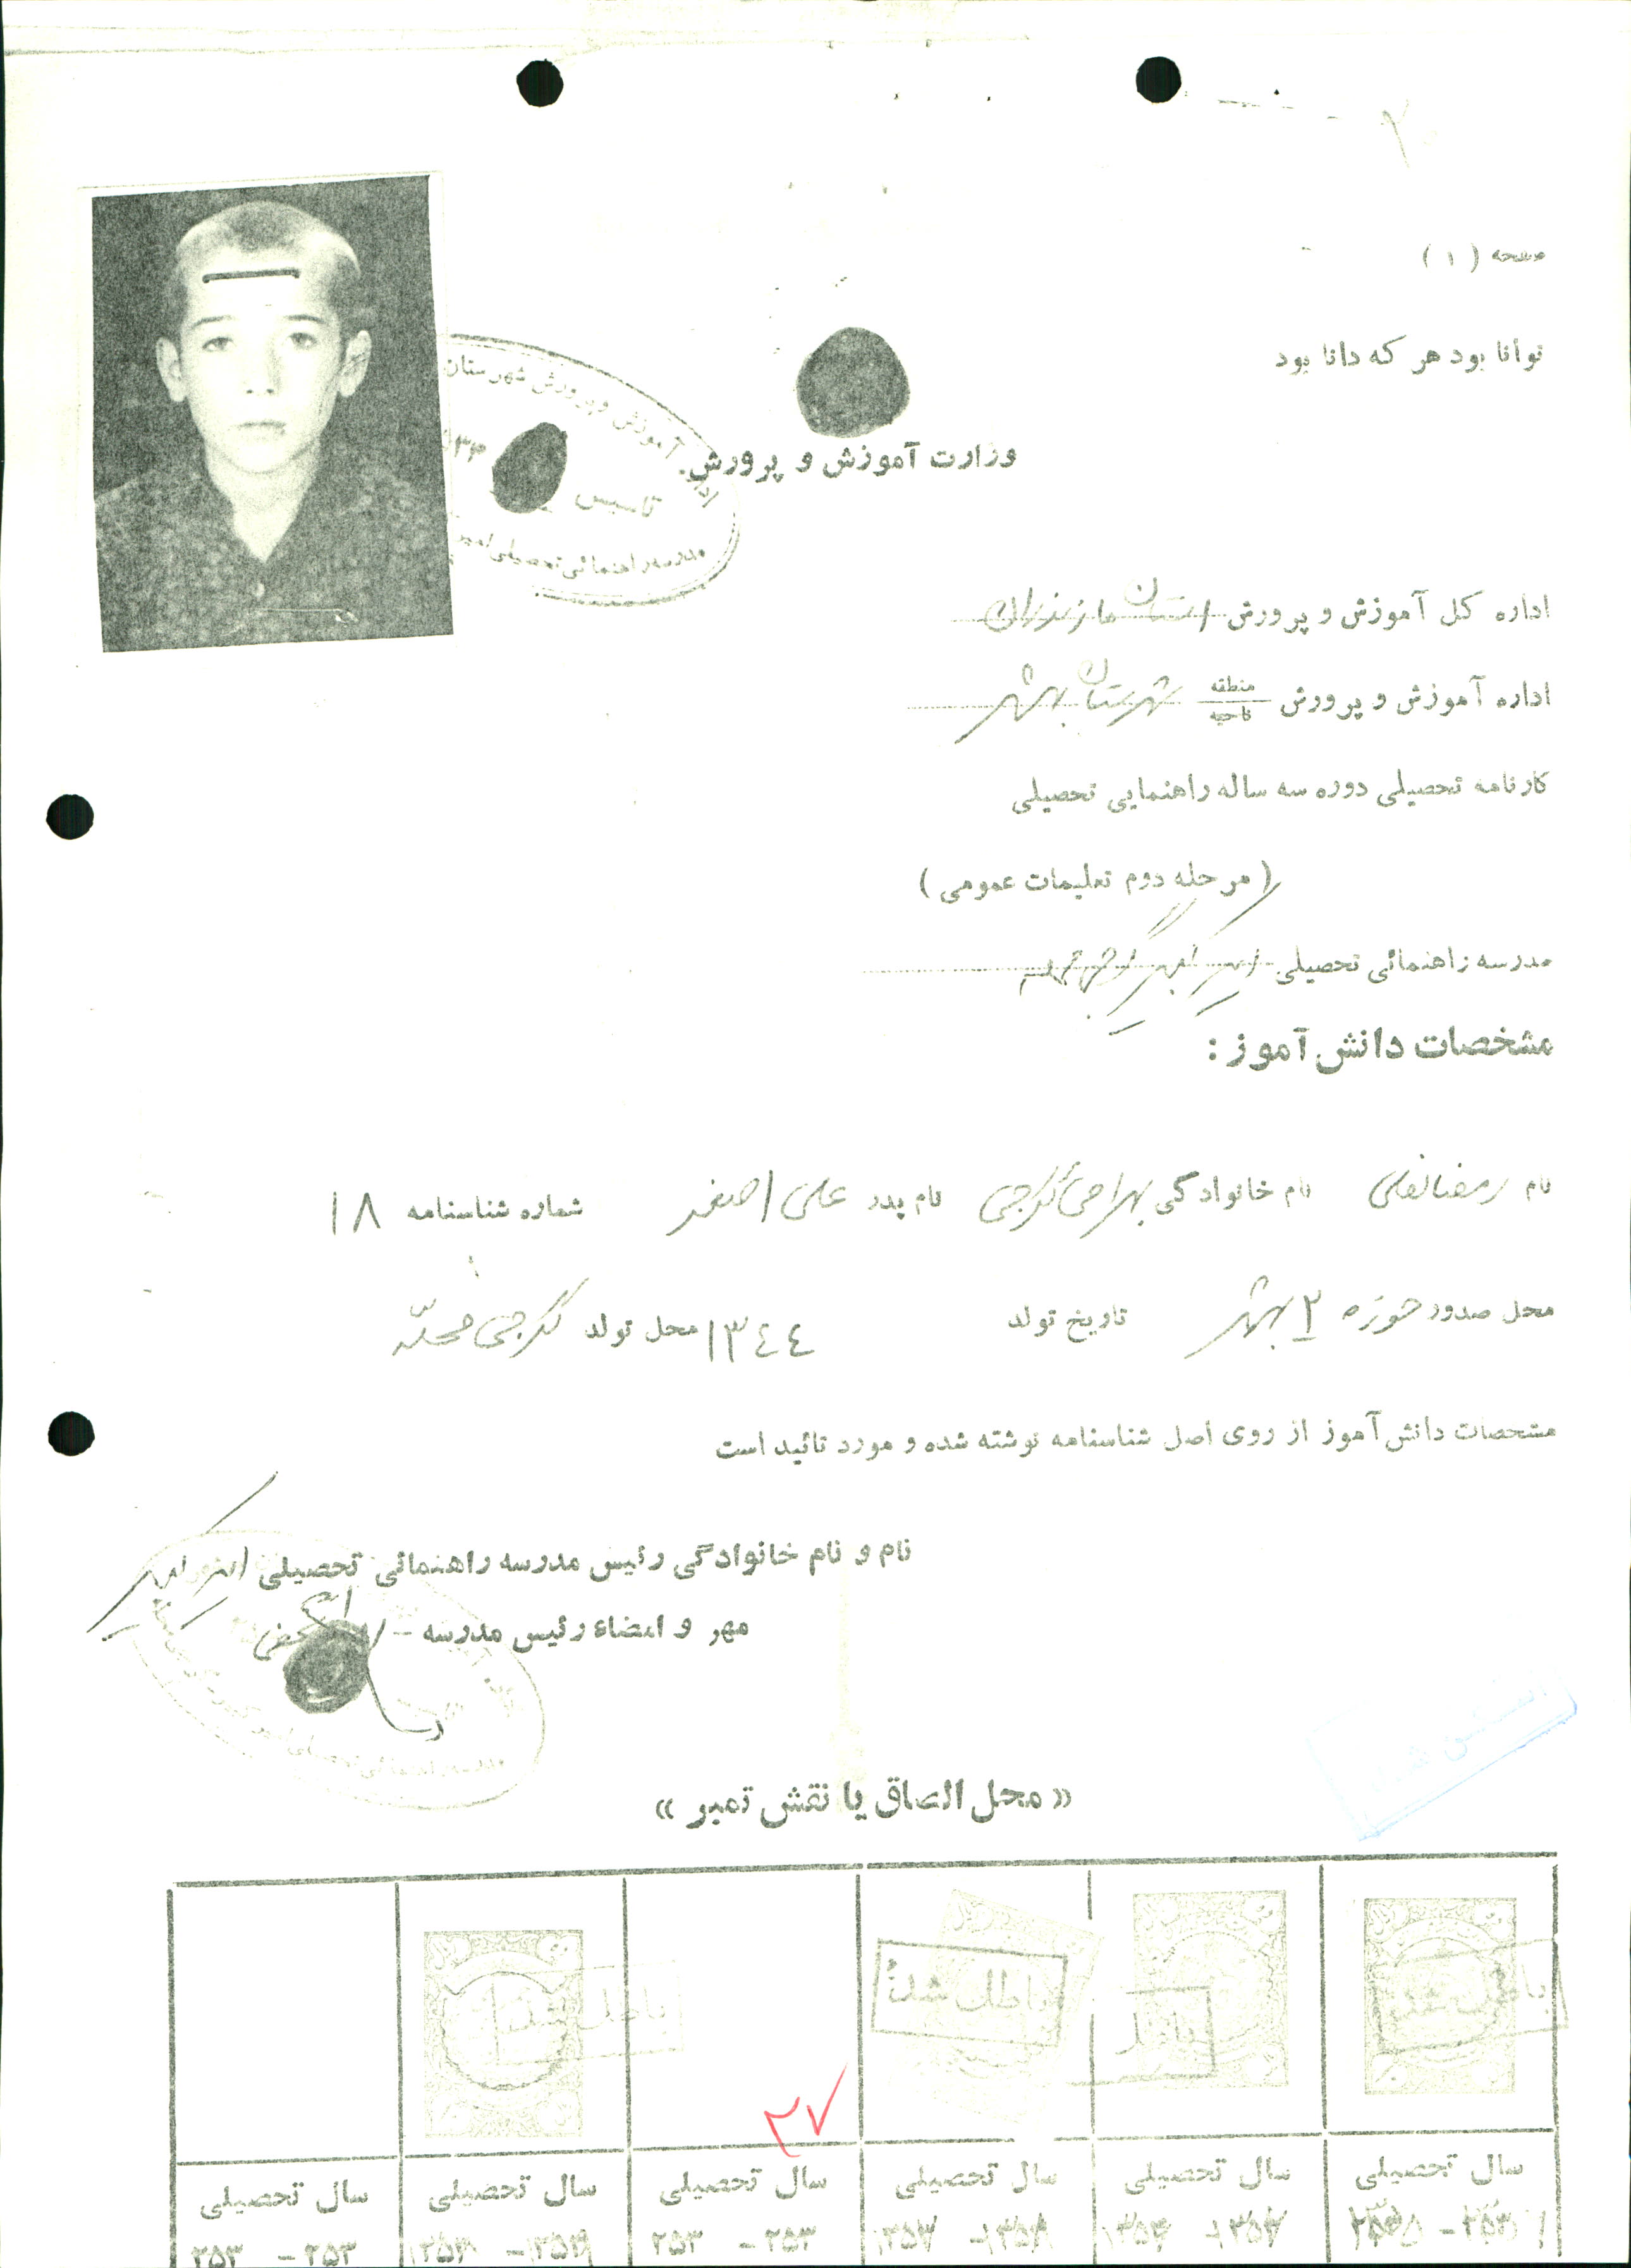 صفحه ( ۱ )
توانا بود هر که دانا بود
وزارت آموزش و پرورش
آموزش و پرورش شهرستان
تاسیس
مدرسه راهنمائی تحصیلی امیر
اداره کل آموزش و پرورش استان مازندران
اداره آموزش و پرورش منطقه ناحیه شهرستان بهشهر
کارنامه تحصیلی دوره سه ساله راهنمایی تحصیلی
( مرحله دوم تعلیمات عمومی )
مدرسه راهنمائی تحصیلی امیر کبیر
مشخصات دانش آموز :
نام رمضانعلی نام خانوادگی گرجی نام پدر علی اصغر شماره شناسنامه ۱۸
محل صدور حوزه ۲ بهشهر تاریخ تولد ۱۳۴۴ محل تولد گرجی محله
مشخصات دانش آموز از روی اصل شناسنامه نوشته شده و مورد تائید است
نام و نام خانوادگی رئیس مدرسه راهنمائی تحصیلی
مهر و امضاء رئیس مدرسه -
« محل الصاق یا نقش تمبر »
باطل شد باطل باطل شد باطل شد
۲۷
سال تحصیلی سال تحصیلی سال تحصیلی سال تحصیلی سال تحصیلی سال تحصیلی
۲۵۳ - ۲۵۳ ۲۵۳ - ۲۵۳